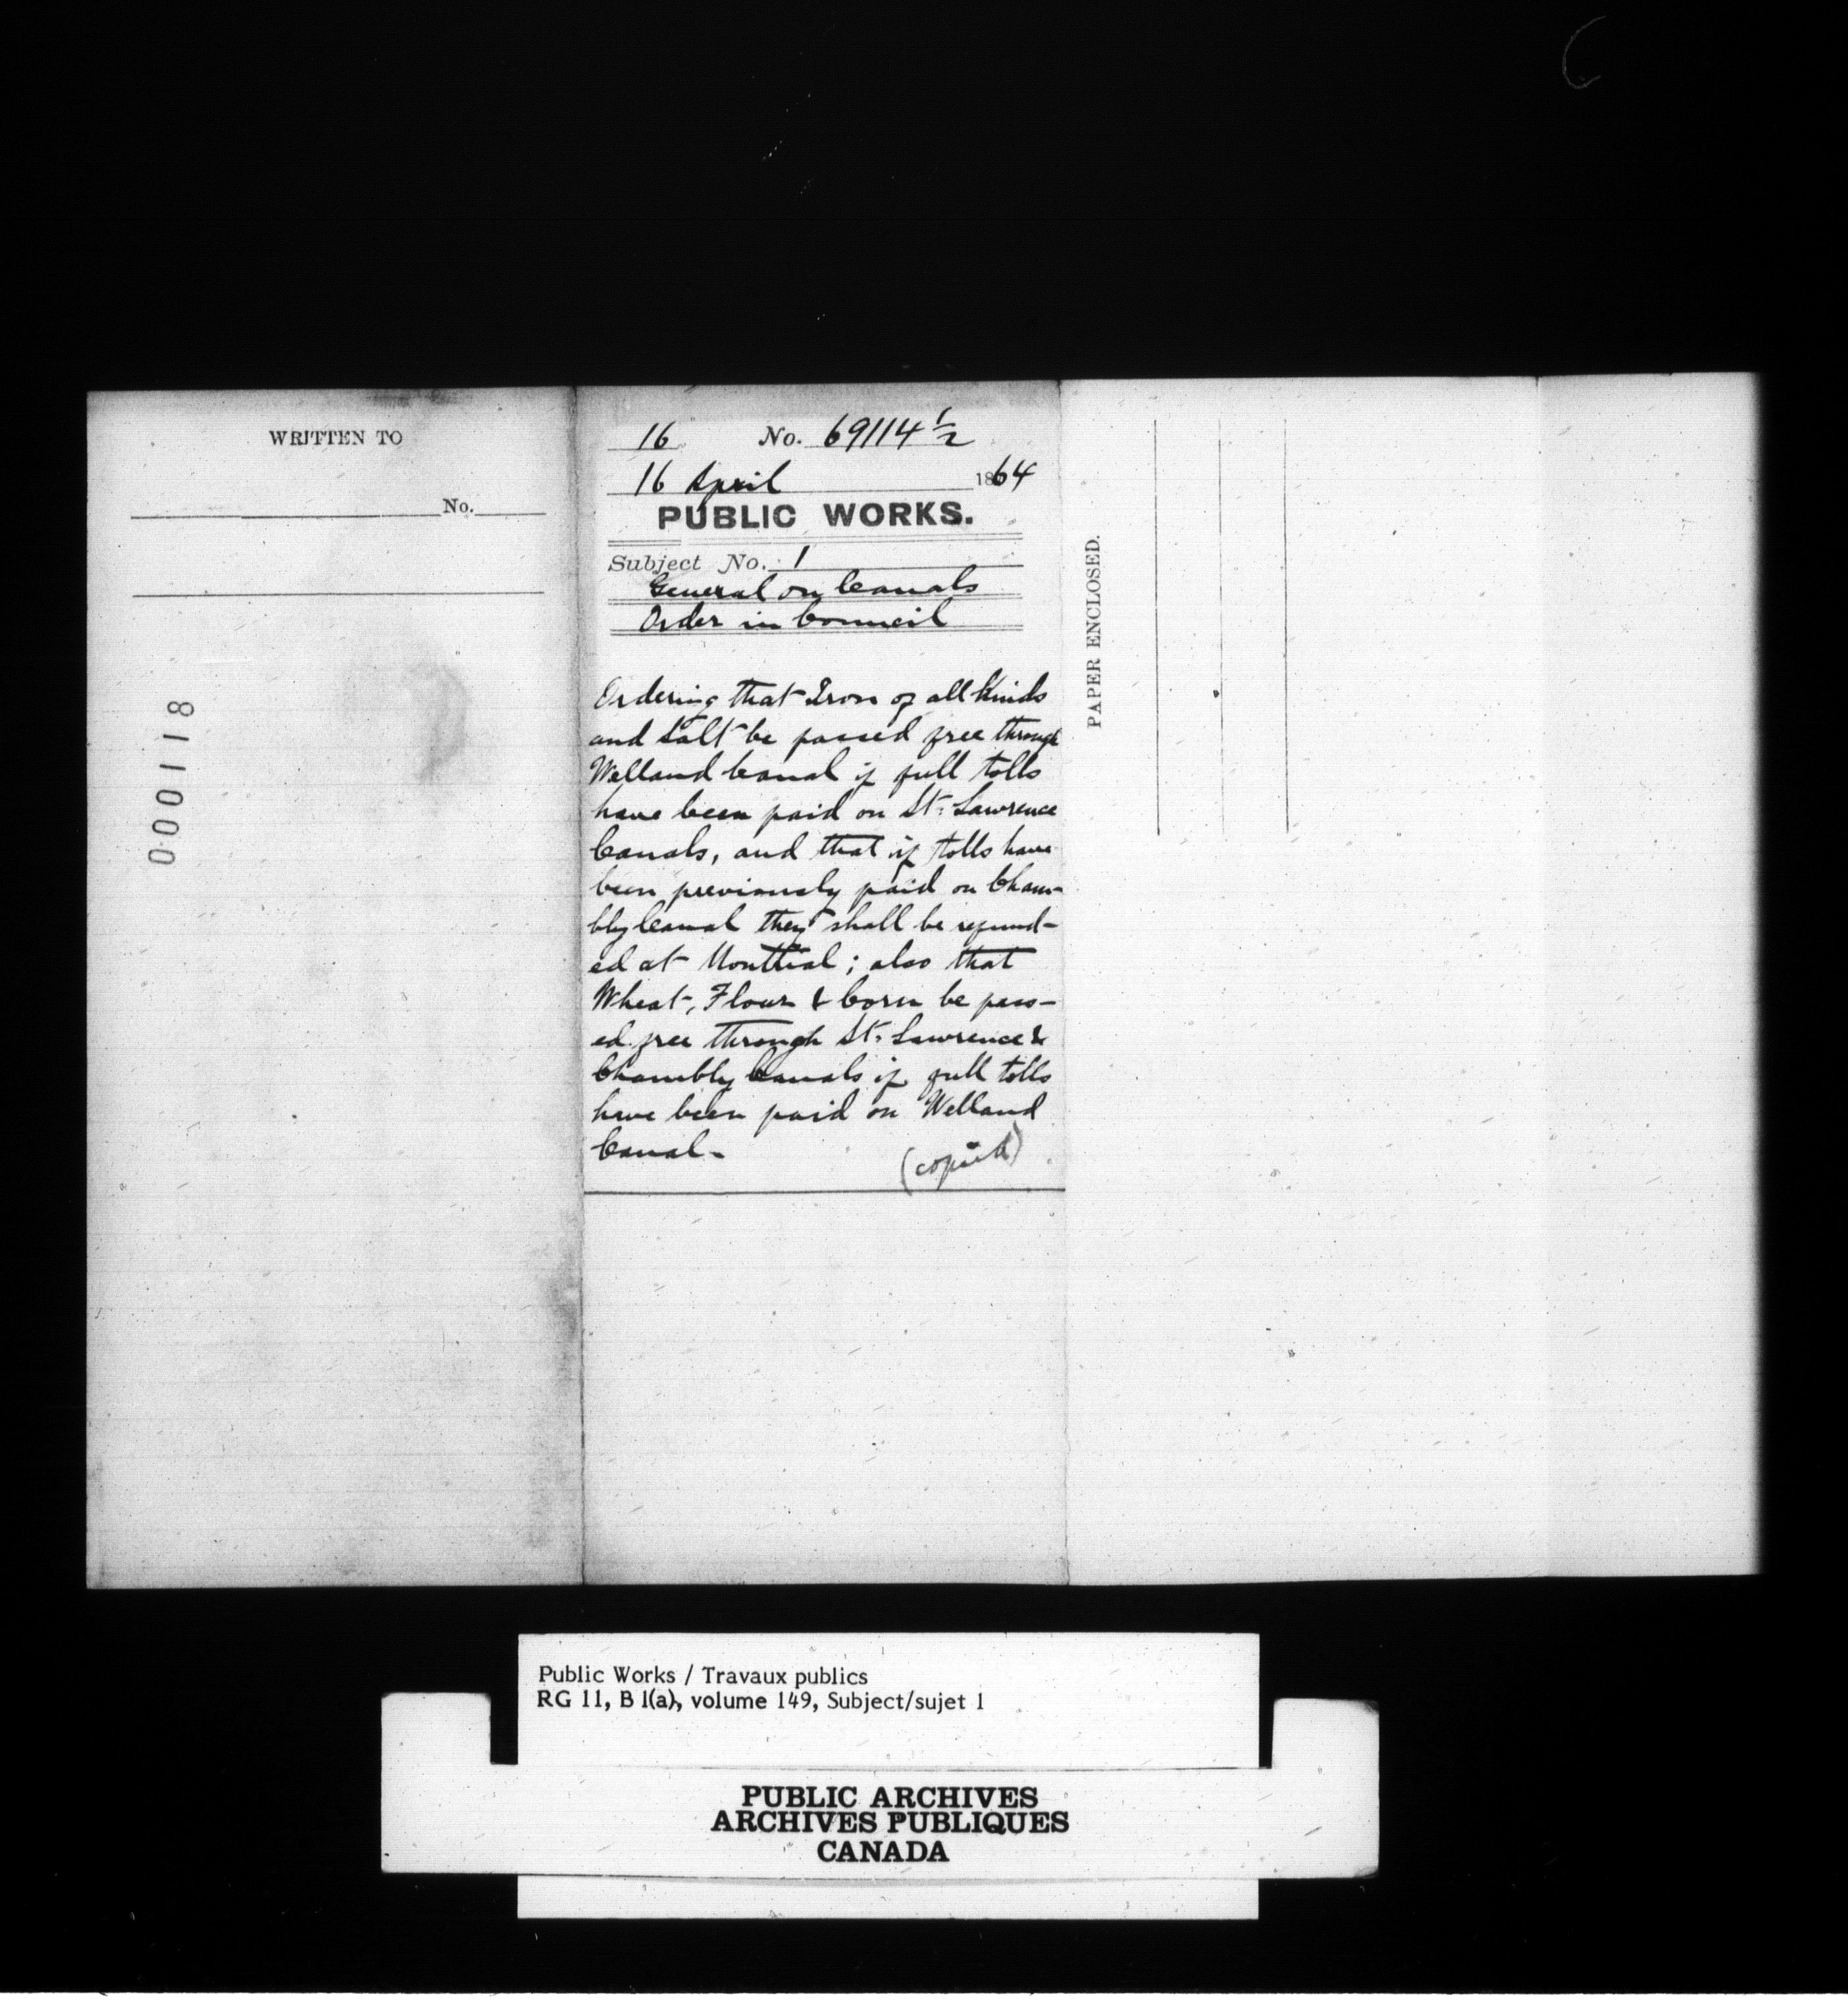 WRITTEN TO
No.
000118
16 No. 69114 1/2
16 April 1864
PUBLIC WORKS.
Subject No. 1
General on Canals
Order in Council
Ordering that Iron of all Kinds
and Salt be passed free through
Welland Canal if full tolls
have been paid on St. Lawrence
Canals, and that if tolls have
been previously paid on Cham-
bly Canal they shall be refund-
ed at Montreal; also that
Wheat, Flour & Corn be pass-
ed free through St. Lawrence &
Chambly Canals if full tolls
have been paid on Welland
Canal-
(copied)
PAPER ENCLOSED.
Public Works / Travaux publics
RG 11, B 1(a), volume 149, Subject/sujet 1
PUBLIC ARCHIVES
ARCHIVES PUBLIQUES
CANADA